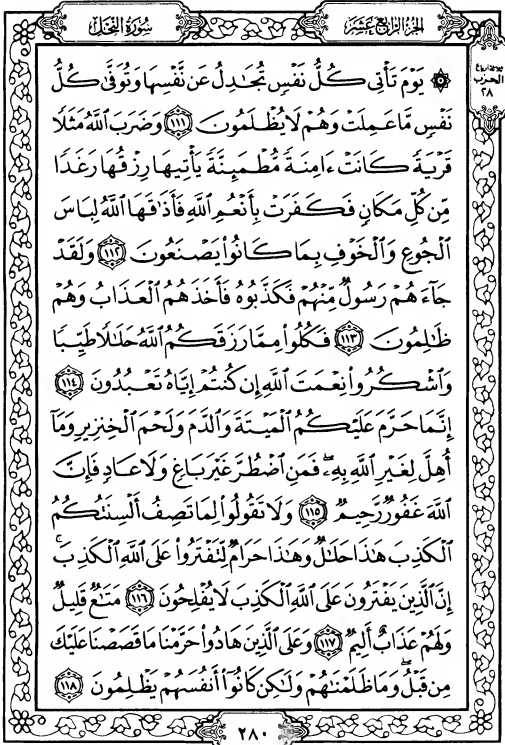 سُورَةُ النَّحْلِ
الجُزْءُ الرَّابِعَ عَشَرَ
الحِزْب
٢٨
۞ يَوْمَ تَأْتِي كُلُّ نَفْسٖ تُجَٰدِلُ عَن نَّفْسِهَا وَتُوَفَّىٰ كُلُّ
نَفْسٖ مَّا عَمِلَتْ وَهُمْ لَا يُظْلَمُونَ ١١١ وَضَرَبَ ٱللَّهُ مَثَلٗا
قَرْيَةٗ كَانَتْ ءَامِنَةٗ مُّطْمَئِنَّةٗ يَأْتِيهَا رِزْقُهَا رَغَدٗا
مِّن كُلِّ مَكَانٖ فَكَفَرَتْ بِأَنْعُمِ ٱللَّهِ فَأَذَٰقَهَا ٱللَّهُ لِبَاسَ
ٱلْجُوعِ وَٱلْخَوْفِ بِمَا كَانُواْ يَصْنَعُونَ ١١٢ وَلَقَدْ
جَآءَهُمْ رَسُولٞ مِّنْهُمْ فَكَذَّبُوهُ فَأَخَذَهُمُ ٱلْعَذَابُ وَهُمْ
ظَٰلِمُونَ ١١٣ فَكُلُواْ مِمَّا رَزَقَكُمُ ٱللَّهُ حَلَٰلٗا طَيِّبٗا
وَٱشْكُرُواْ نِعْمَتَ ٱللَّهِ إِن كُنتُمْ إِيَّاهُ تَعْبُدُونَ ١١٤
إِنَّمَا حَرَّمَ عَلَيْكُمُ ٱلْمَيْتَةَ وَٱلدَّمَ وَلَحْمَ ٱلْخِنزِيرِ وَمَآ
أُهِلَّ لِغَيْرِ ٱللَّهِ بِهِۦۖ فَمَنِ ٱضْطُرَّ غَيْرَ بَاغٖ وَلَا عَادٖ فَإِنَّ
ٱللَّهَ غَفُورٞ رَّحِيمٞ ١١٥ وَلَا تَقُولُواْ لِمَا تَصِفُ أَلْسِنَتُكُمُ
ٱلْكَذِبَ هَٰذَا حَلَٰلٞ وَهَٰذَا حَرَامٞ لِّتَفْتَرُواْ عَلَى ٱللَّهِ ٱلْكَذِبَۚ
إِنَّ ٱلَّذِينَ يَفْتَرُونَ عَلَى ٱللَّهِ ٱلْكَذِبَ لَا يُفْلِحُونَ ١١٦ مَتَٰعٞ قَلِيلٞ
وَلَهُمْ عَذَابٌ أَلِيمٞ ١١٧ وَعَلَى ٱلَّذِينَ هَادُواْ حَرَّمْنَا مَا قَصَصْنَا عَلَيْكَ
مِن قَبْلُۖ وَمَا ظَلَمْنَٰهُمْ وَلَٰكِن كَانُوٓاْ أَنفُسَهُمْ يَظْلِمُونَ ١١٨
٢٨٠